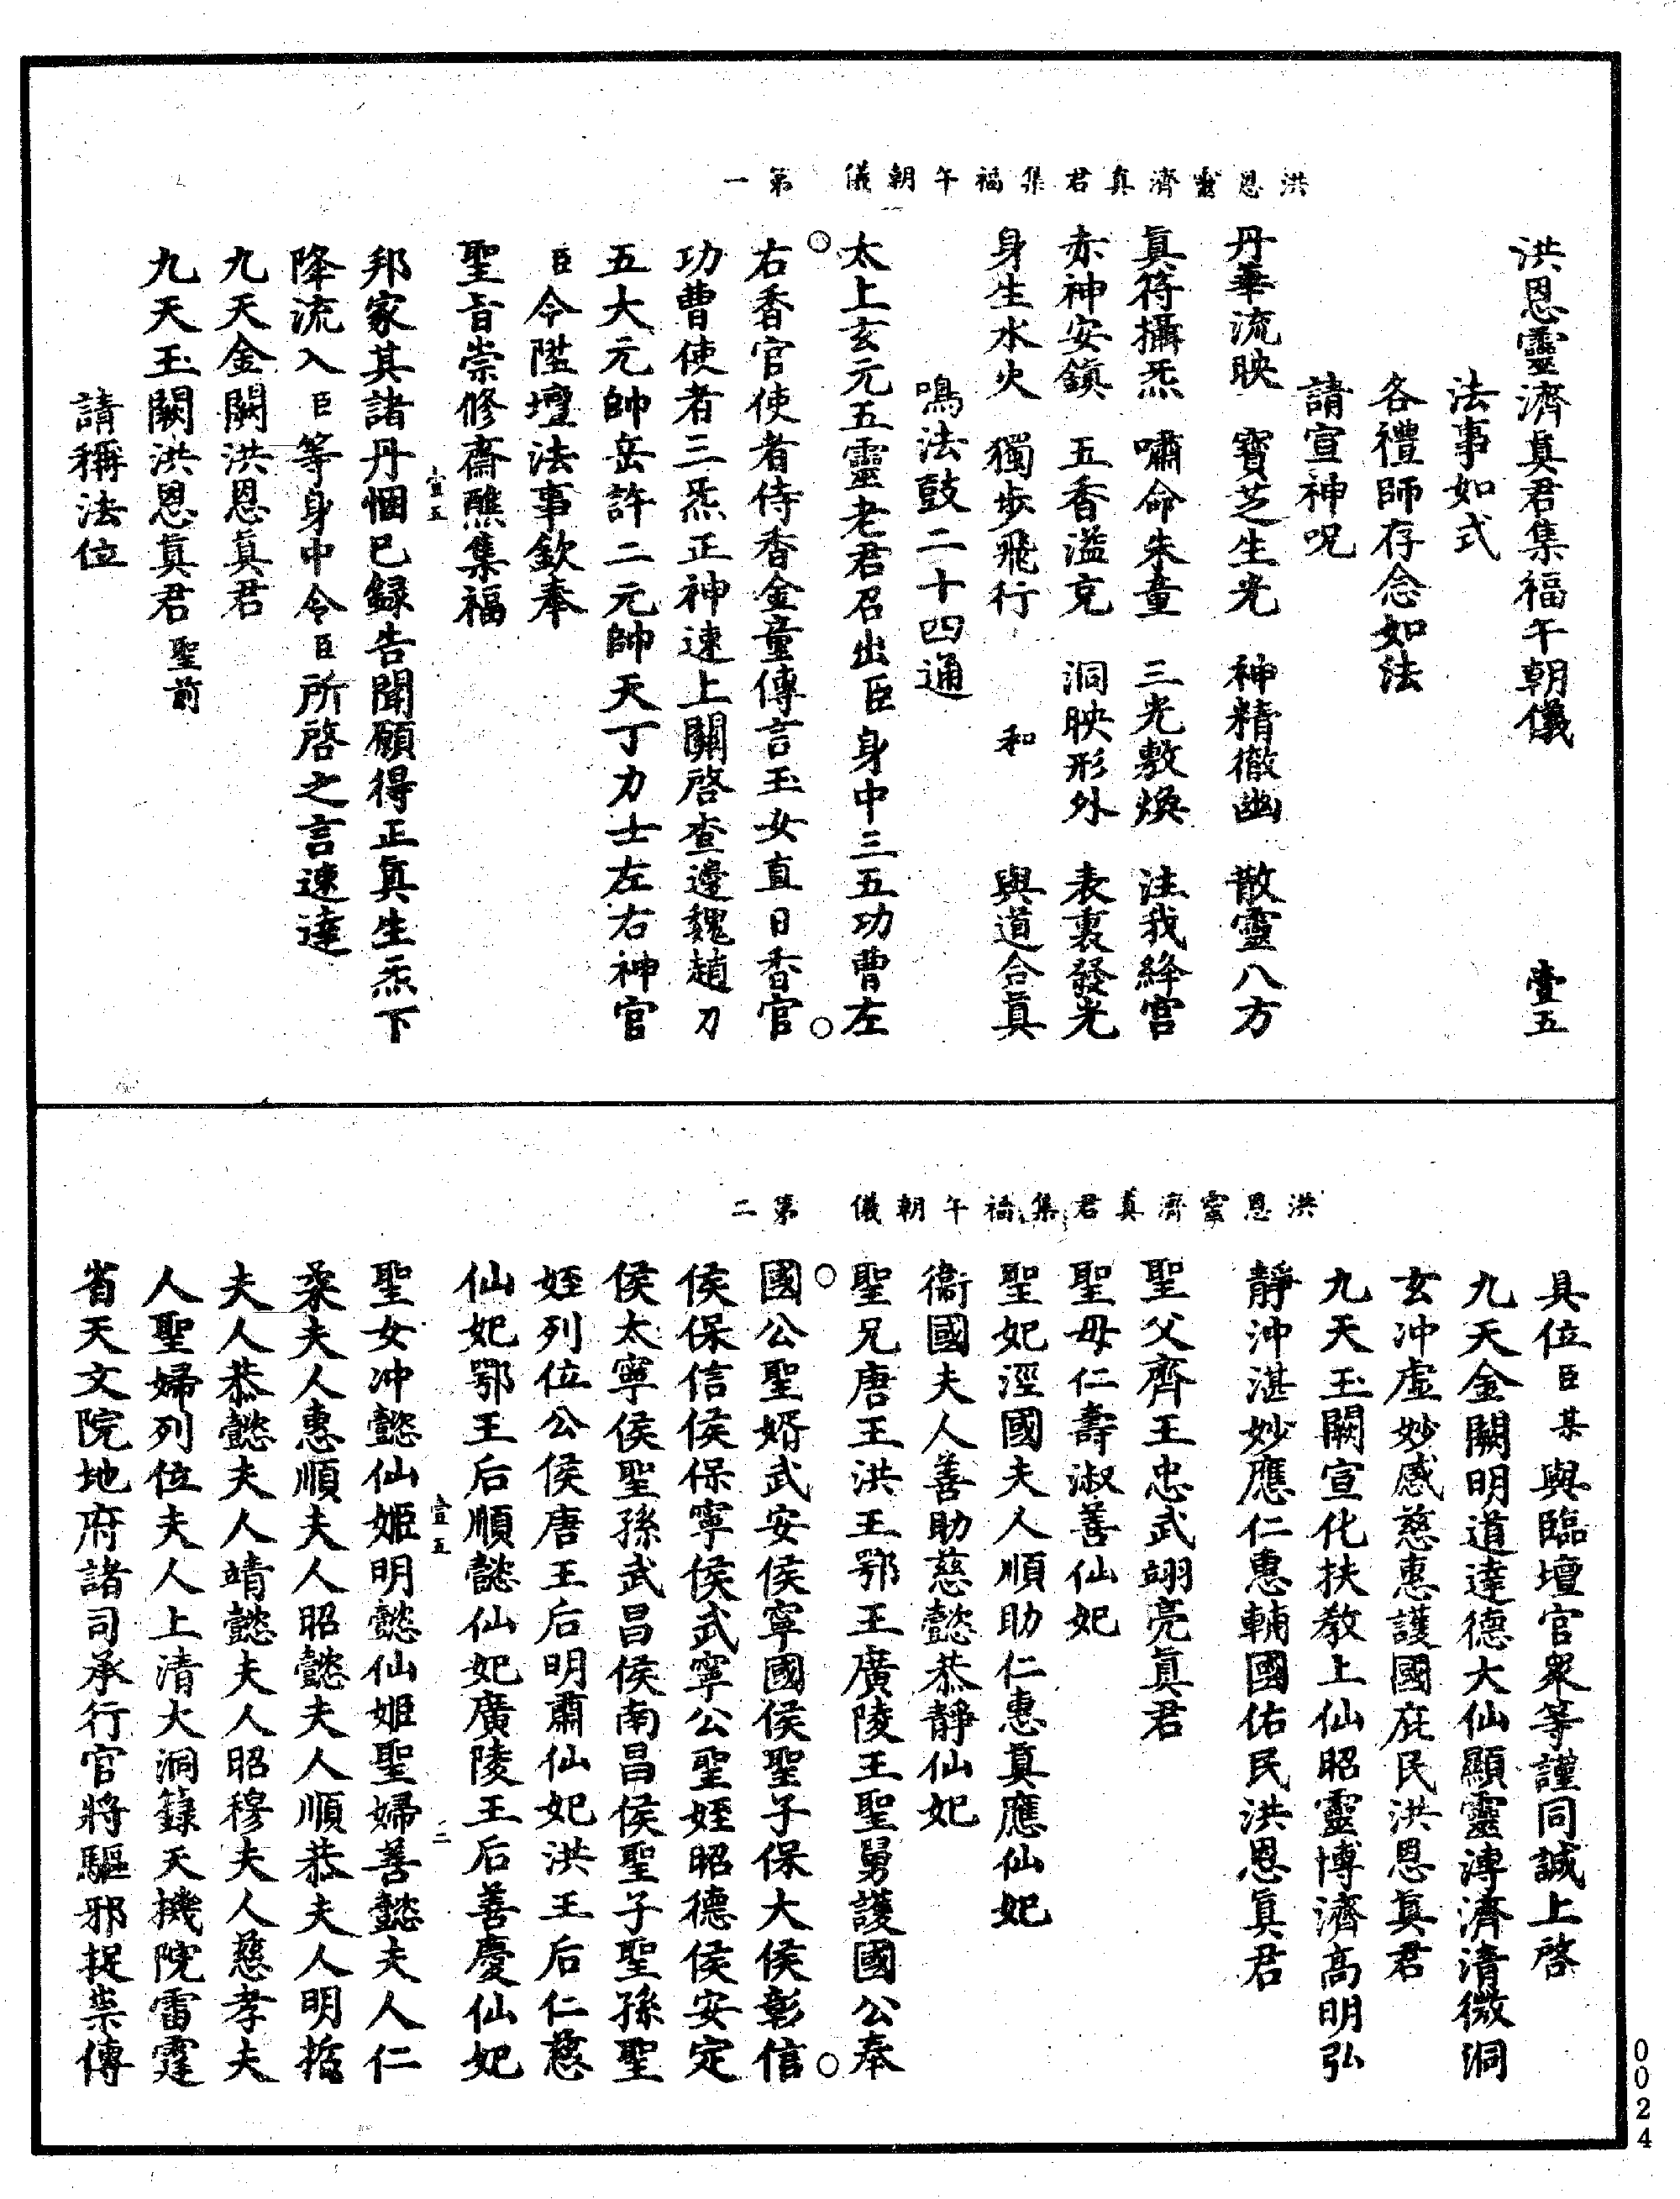 洪恩靈濟真君集福午朝儀　第一
洪恩靈濟眞君集福午朝儀　壹五
法事如式
各禮師存念如法
請宣神呪
丹華流映　寶芝生光　神精徹幽　散靈八方
眞符攝炁　嘯命朱童　三光敷煥　注我絳宮
赤神安鎮　五香溢充　洞映形外　表裏發光
身生水火　獨步飛行　和　與道合眞
鳴法鼓二十四通
太上玄元五靈老君召出臣身中三五功曹左
右香官使者侍香金童傳言玉女直日香官
功曹使者三炁正神速上關啓查邊魏趙刀
五大元帥岳許二元帥天丁力士左右神官
臣今陞壇法事欽奉
聖旨崇修齋醮集福
壹五
邦家其諸丹悃已錄告聞願得正眞生炁下
降流入臣等身中令臣所啓之言速達
九天金闕洪恩眞君
九天玉闕洪恩眞君聖前
請稱法位
洪恩靈濟真君集福午朝儀　第二
具位臣某與臨壇官衆等謹同誠上啓
九天金闕明道達德大仙顯靈溥濟清微洞
玄冲虛妙感慈惠護國庇民洪恩眞君
九天玉闕宣化扶教上仙昭靈博濟高明弘
靜沖湛妙應仁惠輔國佑民洪恩眞君
聖父齊王忠武翊亮眞君
聖母仁壽淑善仙妃
聖妃涇國夫人順助仁惠眞應仙妃
衞國夫人善助慈懿恭靜仙妃
聖兄唐王洪王鄂王廣陵王聖舅護國公奉
國公聖婿武安侯寧國侯聖子保大侯彰信
侯保信侯保寧侯武寧公聖姪昭德侯安定
侯太寧侯聖孫武昌侯南昌侯聖子聖孫聖
姪列位公侯唐王后明肅仙妃洪王后仁慈
仙妃鄂王后順懿仙妃廣陵王后善慶仙妃
壹五　二
聖女冲懿仙姬明懿仙姬聖婦善懿夫人仁
柔夫人惠順夫人昭懿夫人順恭夫人明哲
夫人恭懿夫人靖懿夫人昭穆夫人慈孝夫
人聖婦列位夫人上清大洞籙天機院雷霆
省天文院地府諸司承行官將驅邪捉祟傳
0024